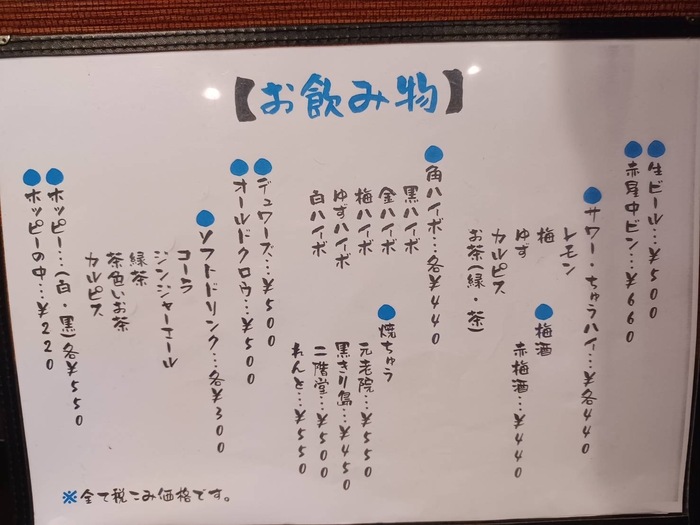 【お飲み物】
●生ビール…¥500
●赤星中ビン…¥660
●サワー・ちゅうハイ…¥各440
レモン
梅
ゆず
カルピス
お茶(緑・茶)
●梅酒
赤梅酒…¥440
●角ハイボ…各¥440
黒ハイボ
金ハイボ
梅ハイボ
ゆずハイボ
白ハイボ
●焼ちゅう
元老院…¥550
黒きり島…¥450
二階堂…¥500
れんと…¥550
●デュワーズ…¥500
●オールドクロウ…¥500
●ソフトドリンク…各¥300
コーラ
ジンジャーエール
緑茶
茶色いお茶
カルピス
●ホッピー…(白・黒)各¥550
●ホッピーの中…¥220
※全て税こみ価格です。